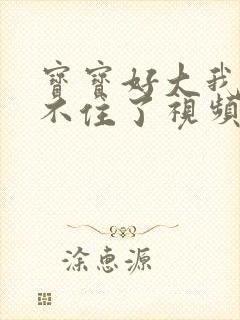 寶寶好大我
不住了視頻
涂惠源